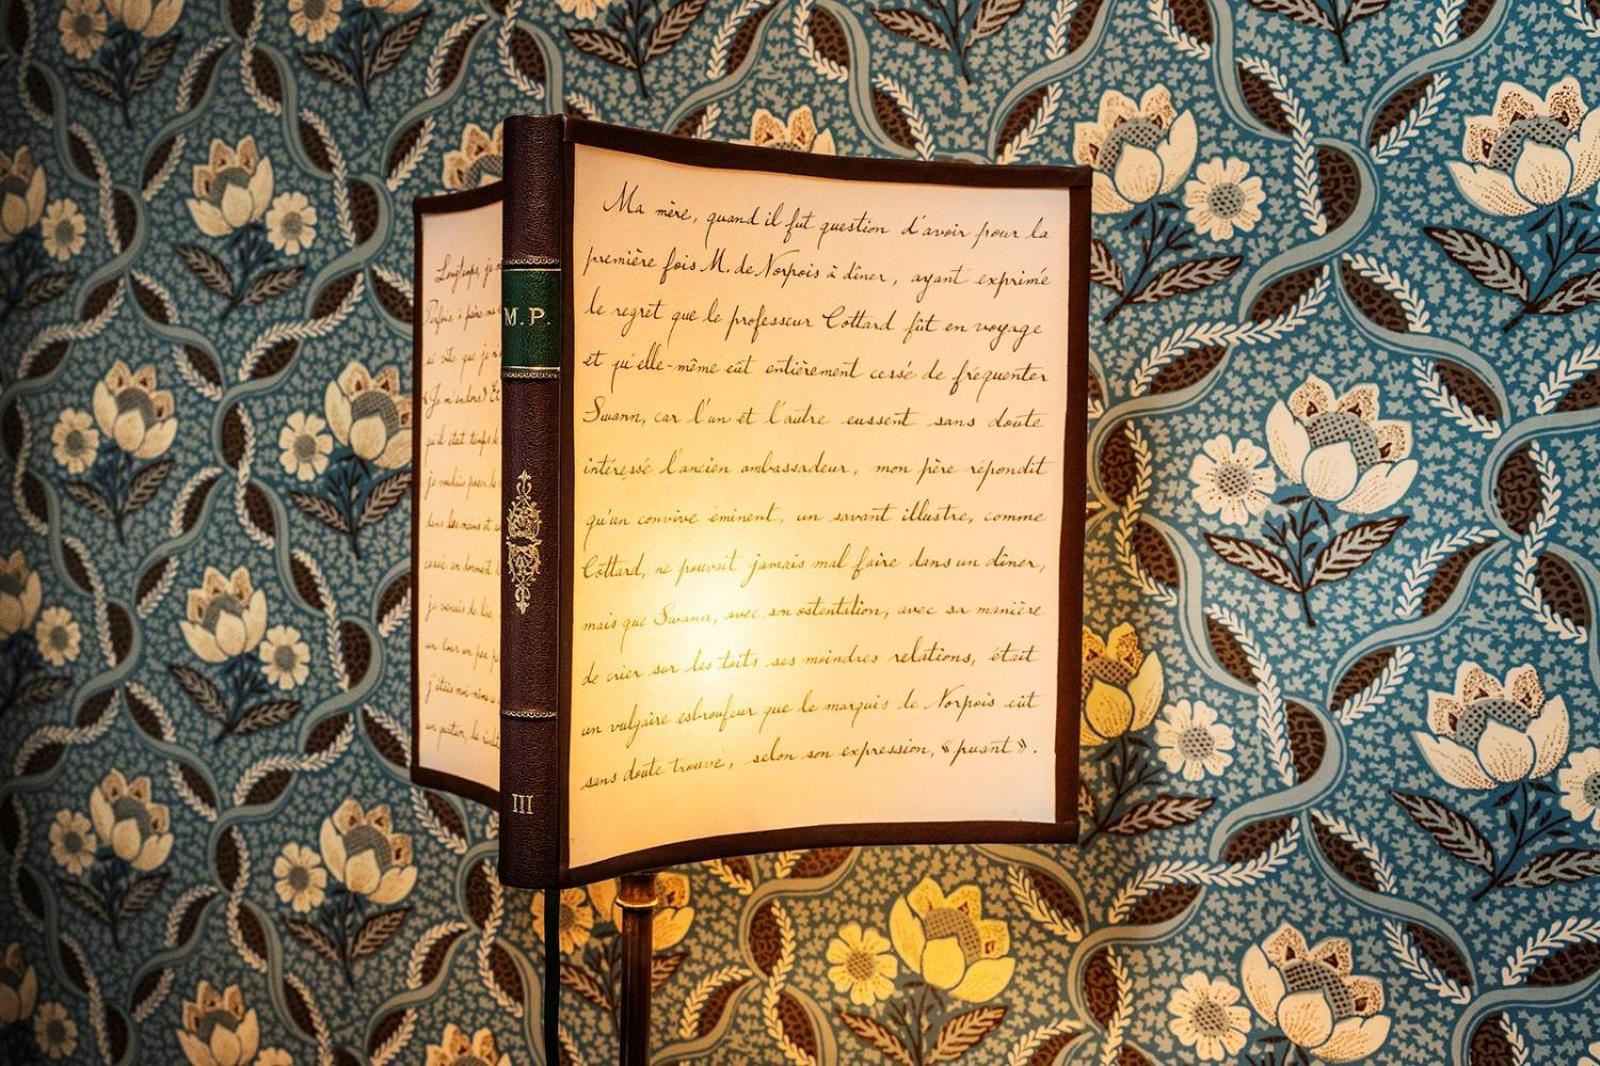 Longtemps, je
Parfois, à peine ma
si vite que je n'
« Je m'endors.» Et
qu'il était temps de
je voulais poser le
dans les mains et
cessé en dormant
je venais de lire,
un tour un peu p
j'étais moi-même
un quatuor, la rivali
M.P.
III
Ma mère, quand il fut question d'avoir pour la
première fois M. de Norpois à dîner, ayant exprimé
le regret que le professeur Cottard fût en voyage
et qu'elle-même eût entièrement cesse de fréquenter
Swann, car l'un et l'autre eussent sans doute
intéressé l'ancien ambassadeur, mon père répondit
qu'un convive éminent, un savant illustre, comme
Cottard, ne pouvait jamais mal faire dans un dîner,
mais que Swann, avec son ostentation, avec sa manière
de crier sur les toits ses moindres relations, était
un vulgaire esbroufeur que le marquis de Norpois eût
sans doute trouvé, selon son expression, « puant ».